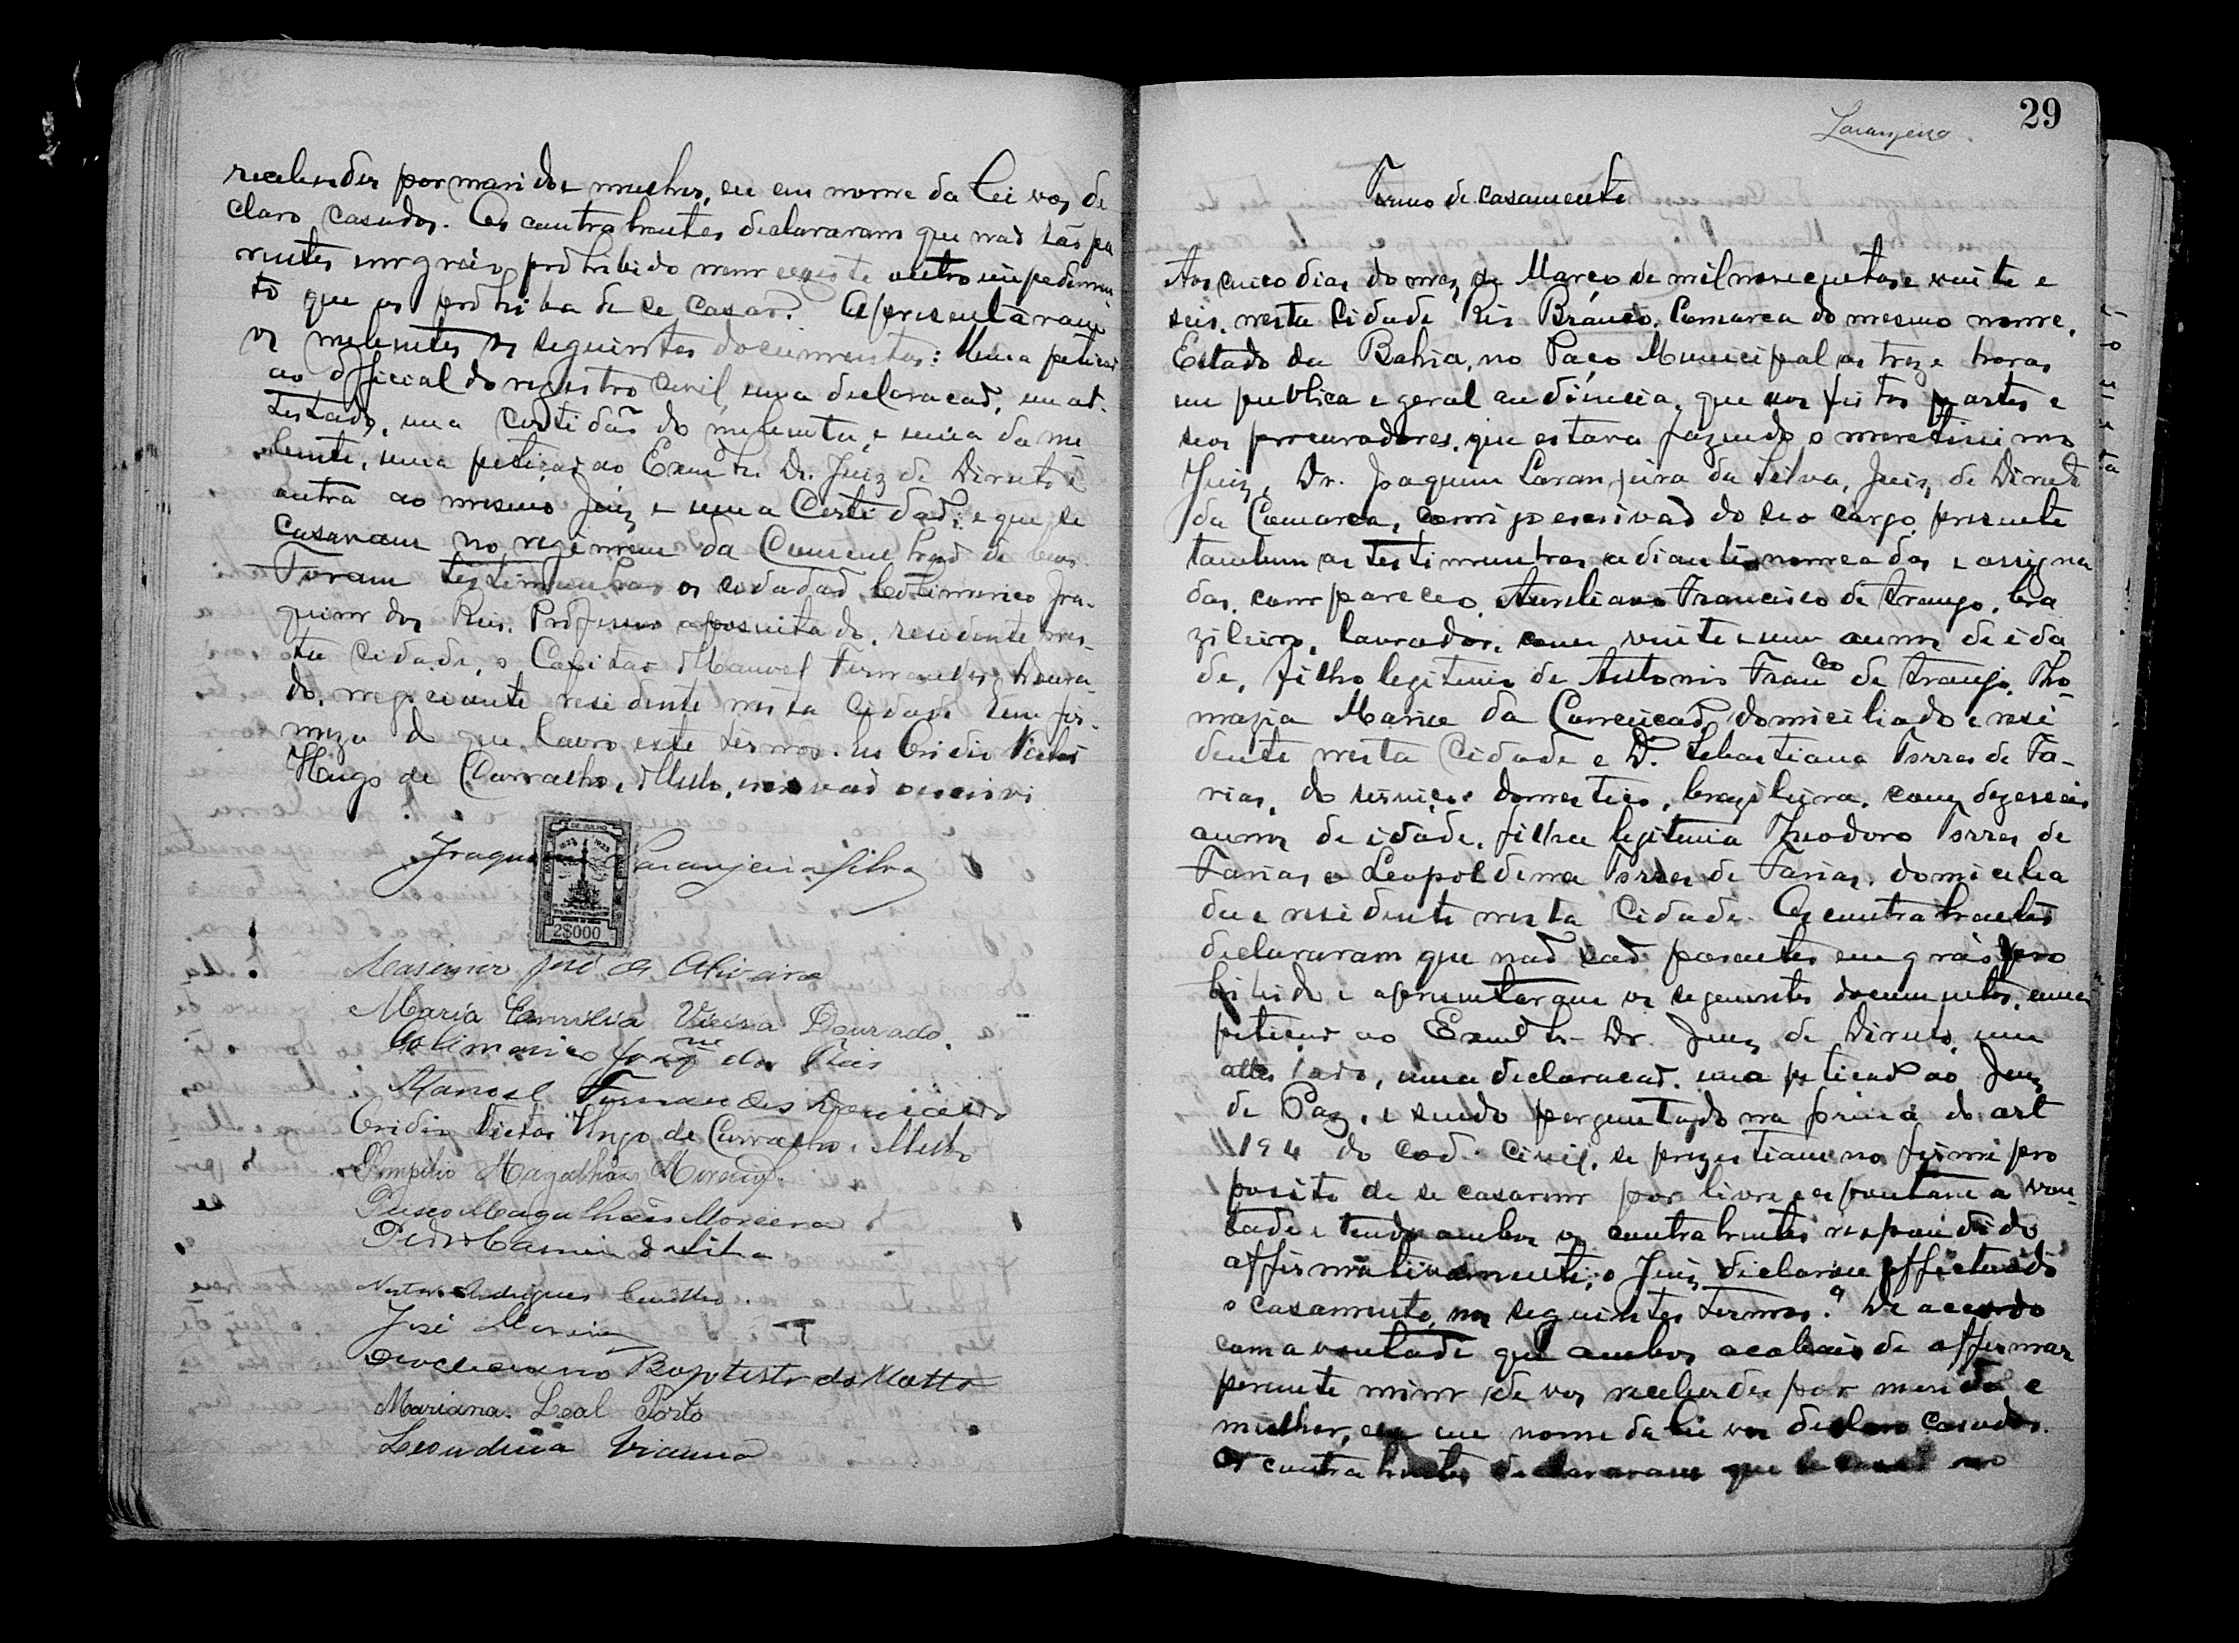 receber por marido e mulher, eu em nome da lei vos de
claro casados. Os contrahentes declararam que não são pa
rentes em gráo prohibido nem existe outro impedimen-
to que os prohiba de se casar. Apresentaram
os nubentes os seguintes documentos: Uma petição
ao official do registro civil, uma declaração, um at-
testado, uma certidão do nubente, e uma da nu
bente, uma petição ao Exmo Sr. Dr. Juiz de Direito e
outra ao mesmo Juiz e uma Certidão; e que se
casavam no regimen da Comunhão de bens
Foram testimunhas os cidadãos Joa-
quim dos Reis, Professor aposentado, residente nes-
ta cidade, o Capitão Manoel Fernandes Doura-
do, negociante residente nesta cidade Em fir-
meza do que lavro este termo. Eu Ovidio Victor
Hugo de Carvalho e Mello, escrivão o escrevi
Joaquim Laranjeira Silva
7 DE JULHO
2$000
José de Oliveira
Maria Emilia Vieira Dourado
Joaqm dos Reis
Manoel Fernandes Dourado
Ovidio Victor Hugo de Carvalho e Mello
Pompilio Magalhães Moreira
Magalhães Moreira
Pedro da Silva
Nestor Rodrigues
José
Deocleciano Baptista de Mattos
Mariana Leal Porto
Leondina Vianna
29
Laranjeira
Termo de casamento
Aos cinco dias do mez de Março de mil novecentos e vinte e
seis, nesta Cidade Rio Branco, Comarca do mesmo nome,
Estado da Bahia, no Paço Municipal as treze horas
em publica e geral audiência, que aos feitos partes e
seos procuradores, que estava fazendo o meretissimo
Juiz, Dr. Joaquim Laranjeira da Silva, Juiz de Direito
da Comarca, comigo escrivão do seo cargo, presente
tambem as testimunhas adiante nomeadas e assigna
das, compareceo Aureliano Francisco de Araujo, bra
zileiro, lavrador, com vinte e um annos de ida
de, filho legitimo de Antonio Franco de Araujo, Tho-
mazia Maria da Conceição, domiciliado e resi
dente nesta Cidade e D. Sebastiana Torres de Fa-
rias, do serviço domestico, brazileira, com dezeseis
annos de idade, filha legitima Theodoro Torres de
Farias e Leopoldina Torres de Farias, domicilia
da e residente nesta Cidade. Os contrahentes
declararam que não são parentes em gráo pro
hibido e apresentaram os seguintes documentos, uma
petição ao Exmo Sr. Dr. Juiz de Direito, um
attestado, uma declaração, uma petição ao Juiz
de Paz, e sendo perguntado na forma do art
194 do Cod. Civil, se persistiam no firme pro
posito de se casarem por livre e espontanea von-
tade e tendo ambos os contrahentes respondido
affirmativamente; o Juiz declarou effectuado
o casamento, nos seguintes termos: "De accordo
com a vontade que ambos acabais de affirmar
perante mim de vos receberdes por marido e
mulher, eu em nome da lei vos declaro casados.
Os contrahentes declararam que no